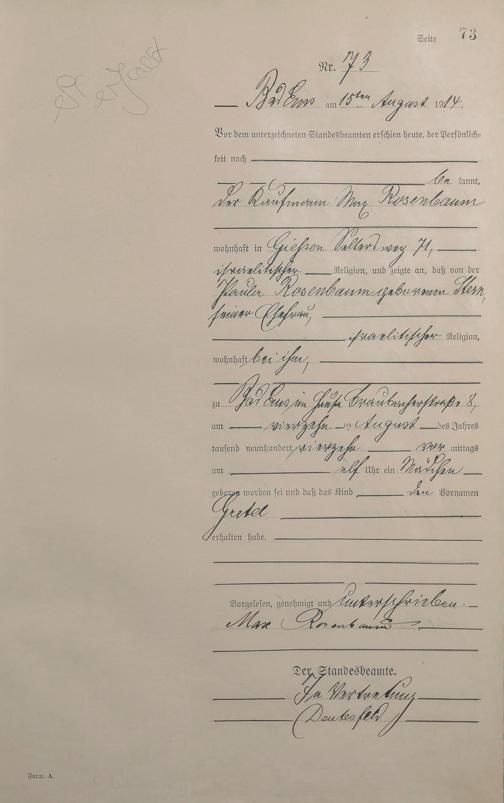 Seite 73
Nr. 73
Bad Ems am 15ten August 1914.
Vor dem unterzeichneten Standesbeamten erschien heute, der Persönlich-
keit nach
be kannt,
der Kaufmann Max Rosenbaum
wohnhaft in Gießen Seltersweg 71,
israelitischer Religion, und zeigte an, daß von der
Paula Rosenbaum geborenen Stern,
seiner Ehefrau,
israelitischer Religion,
wohnhaft bei ihm,
zu Bad Ems im Hause Braubacherstraße 8,
am vierzehn ten August des Jahres
tausend neunhundert vierzehn vor mittags
um elf Uhr ein Mädchen
geboren worden sei und daß das Kind den Vornamen
Gretel
erhalten habe.
Vorgelesen, genehmigt und unterschrieben.
Max Rosenbaum
Der Standesbeamte.
In Vertretung
Form. A.